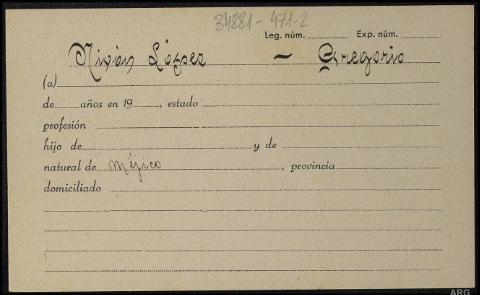 34881-471-2
Leg. núm. Exp. núm.
Nixón López — Gregorio
(a)
de años en 19 , estado
profesión
hijo de y de
natural de Méjico , provincia
domiciliado
ARG